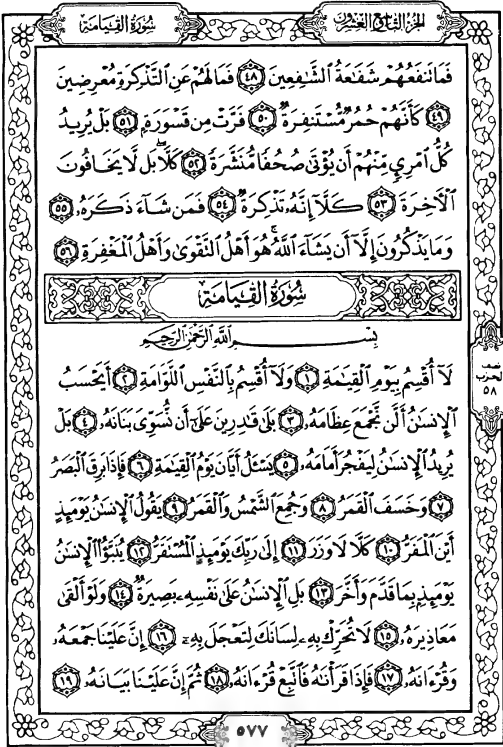 سُورَةُ القِيَامَةِ
الجُزءُ التَّاسِعُ وَالعِشرُون
فَمَا تَنفَعُهُمْ شَفَاعَةُ الشَّافِعِينَ ٤٨ فَمَا لَهُمْ عَنِ التَّذْكِرَةِ مُعْرِضِينَ
٤٩ كَأَنَّهُمْ حُمُرٌ مُّسْتَنفِرَةٌ ٥٠ فَرَّتْ مِن قَسْوَرَةٍ ٥١ بَلْ يُرِيدُ
كُلُّ امْرِئٍ مِّنْهُمْ أَن يُؤْتَىٰ صُحُفًا مُّنَشَّرَةً ٥٢ كَلَّا بَل لَّا يَخَافُونَ
الْآخِرَةَ ٥٣ كَلَّا إِنَّهُ تَذْكِرَةٌ ٥٤ فَمَن شَاءَ ذَكَرَهُ ٥٥
وَمَا يَذْكُرُونَ إِلَّا أَن يَشَاءَ اللَّهُ هُوَ أَهْلُ التَّقْوَىٰ وَأَهْلُ الْمَغْفِرَةِ ٥٦
سُورَةُ القِيَامَةِ
بِسْمِ اللَّهِ الرَّحْمَٰنِ الرَّحِيمِ
لَا أُقْسِمُ بِيَوْمِ الْقِيَامَةِ ١ وَلَا أُقْسِمُ بِالنَّفْسِ اللَّوَّامَةِ ٢ أَيَحْسَبُ
الْإِنسَانُ أَلَّن نَّجْمَعَ عِظَامَهُ ٣ بَلَىٰ قَادِرِينَ عَلَىٰ أَن نُّسَوِّيَ بَنَانَهُ ٤ بَلْ
يُرِيدُ الْإِنسَانُ لِيَفْجُرَ أَمَامَهُ ٥ يَسْأَلُ أَيَّانَ يَوْمُ الْقِيَامَةِ ٦ فَإِذَا بَرِقَ الْبَصَرُ
٧ وَخَسَفَ الْقَمَرُ ٨ وَجُمِعَ الشَّمْسُ وَالْقَمَرُ ٩ يَقُولُ الْإِنسَانُ يَوْمَئِذٍ
أَيْنَ الْمَفَرُّ ١٠ كَلَّا لَا وَزَرَ ١١ إِلَىٰ رَبِّكَ يَوْمَئِذٍ الْمُسْتَقَرُّ ١٢ يُنَبَّؤُا الْإِنسَانُ
يَوْمَئِذٍ بِمَا قَدَّمَ وَأَخَّرَ ١٣ بَلِ الْإِنسَانُ عَلَىٰ نَفْسِهِ بَصِيرَةٌ ١٤ وَلَوْ أَلْقَىٰ
مَعَاذِيرَهُ ١٥ لَا تُحَرِّكْ بِهِ لِسَانَكَ لِتَعْجَلَ بِهِ ١٦ إِنَّ عَلَيْنَا جَمْعَهُ
وَقُرْءَانَهُ ١٧ فَإِذَا قَرَأْنَاهُ فَاتَّبِعْ قُرْءَانَهُ ١٨ ثُمَّ إِنَّ عَلَيْنَا بَيَانَهُ ١٩
نصف
الحزب
٥٨
٥٧٧